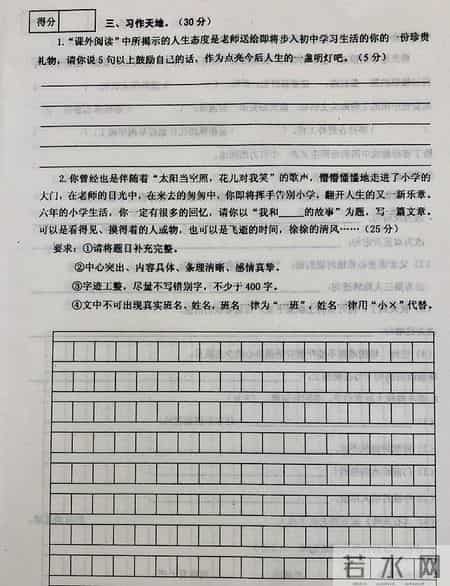 得分
三、习作天地。(30 分)
1.“课外阅读”中所揭示的人生态度是老师送给即将步入初中学习生活的你的一份珍贵
礼物，请你说 5 句以上鼓励自己的话，作为点亮今后人生的一盏明灯吧。(5 分)
2.你曾经也是伴随着“太阳当空照，花儿对我笑”的歌声，懵懵懂懂地走进了小学的
大门，在老师的目光中，在来去的匆匆中，你即将挥手告别小学，翻开人生的又一新乐章。
六年的小学生活，你一定有很多的回忆，请你以“我和____的故事”为题，写一篇文章。
可以是看得见、摸得着的人或物，也可以是飞逝的时间，徐徐的清风……(25 分)
要求：①请将题目补充完整。
②中心突出、内容具体、条理清晰、感情真挚。
③字迹工整，尽量不写错别字，不少于 400 字。
④文中不可出现真实班名、姓名，班名一律为“一班”，姓名一律用“小×”代替。
若水网